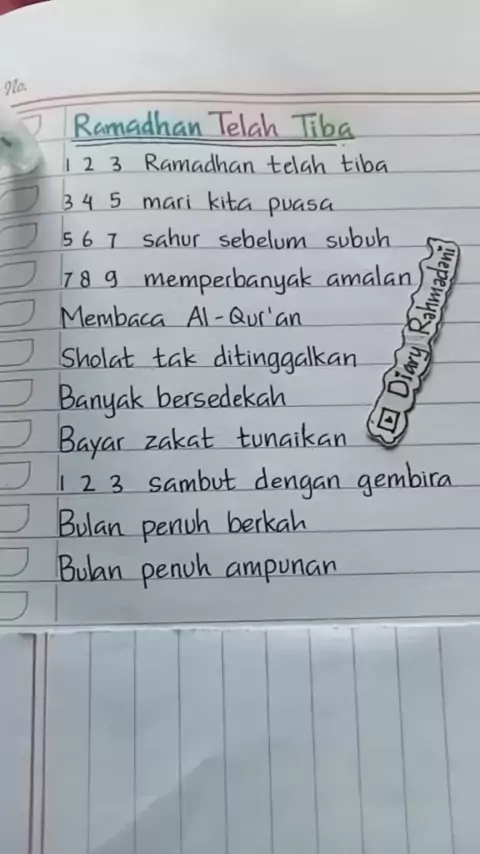 No.
Ramadhan Telah Tiba
1 2 3 Ramadhan telah tiba
3 4 5 mari kita puasa
5 6 7 sahur sebelum subuh
7 8 9 memperbanyak amalan
Membaca Al-Qur'an
Sholat tak ditinggalkan
Banyak bersedekah
Bayar zakat tunaikan
1 2 3 sambut dengan gembira
Bulan penuh berkah
Bulan penuh ampunan
Diary Rahmadani